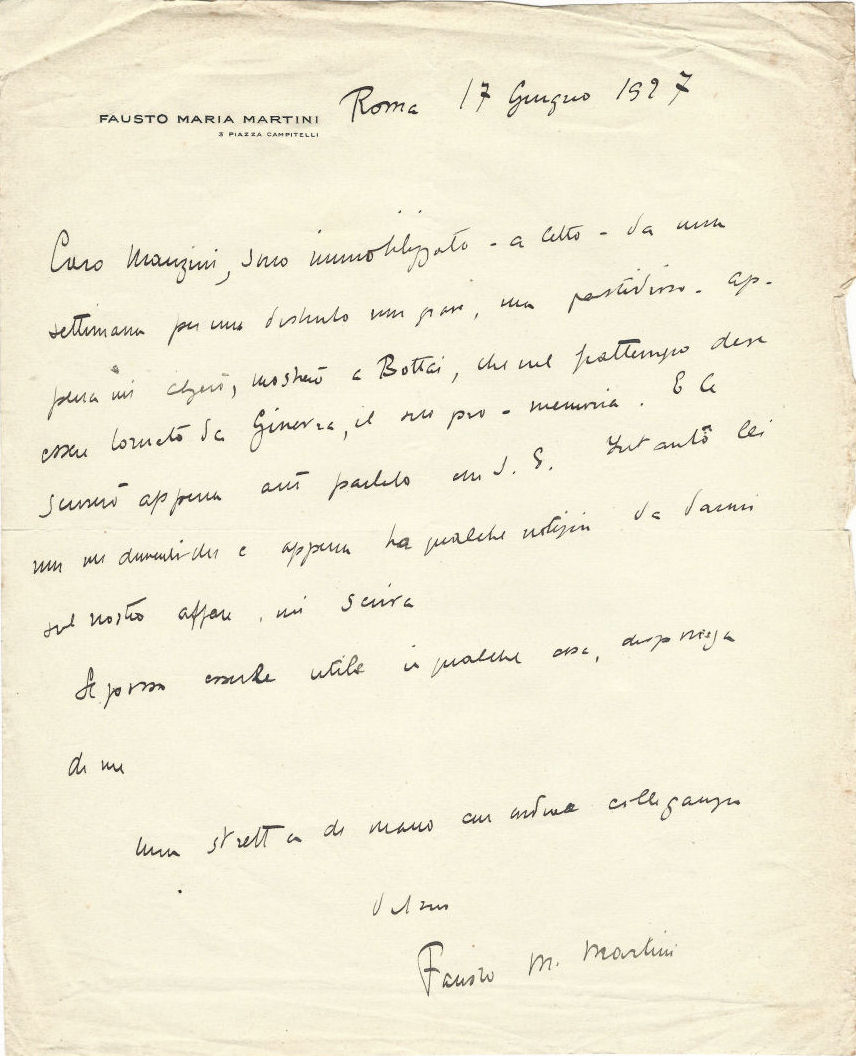 FAUSTO MARIA MARTINI
3 PIAZZA CAMPITELLI
Roma 17 Giugno 1927
Caro Manzini, sono immobilizzato - a letto - da una
settimana per un disturbo non grave, ma fastidioso. Ap-
pena mi alzerò, mostrerò a Bottai, che nel frattempo deve
essere tornato da Ginevra, il suo pro-memoria. E le
scriverò appena avrò parlato con S. E. Intanto lei
non mi dimentichi e appena ha qualche notizia da darmi
sul nostro affare, mi scriva
Se posso esserLe utile in qualche cosa, disponga
di me
Una stretta di mano con cordiale colleganza
dal suo
Fausto M. Martini